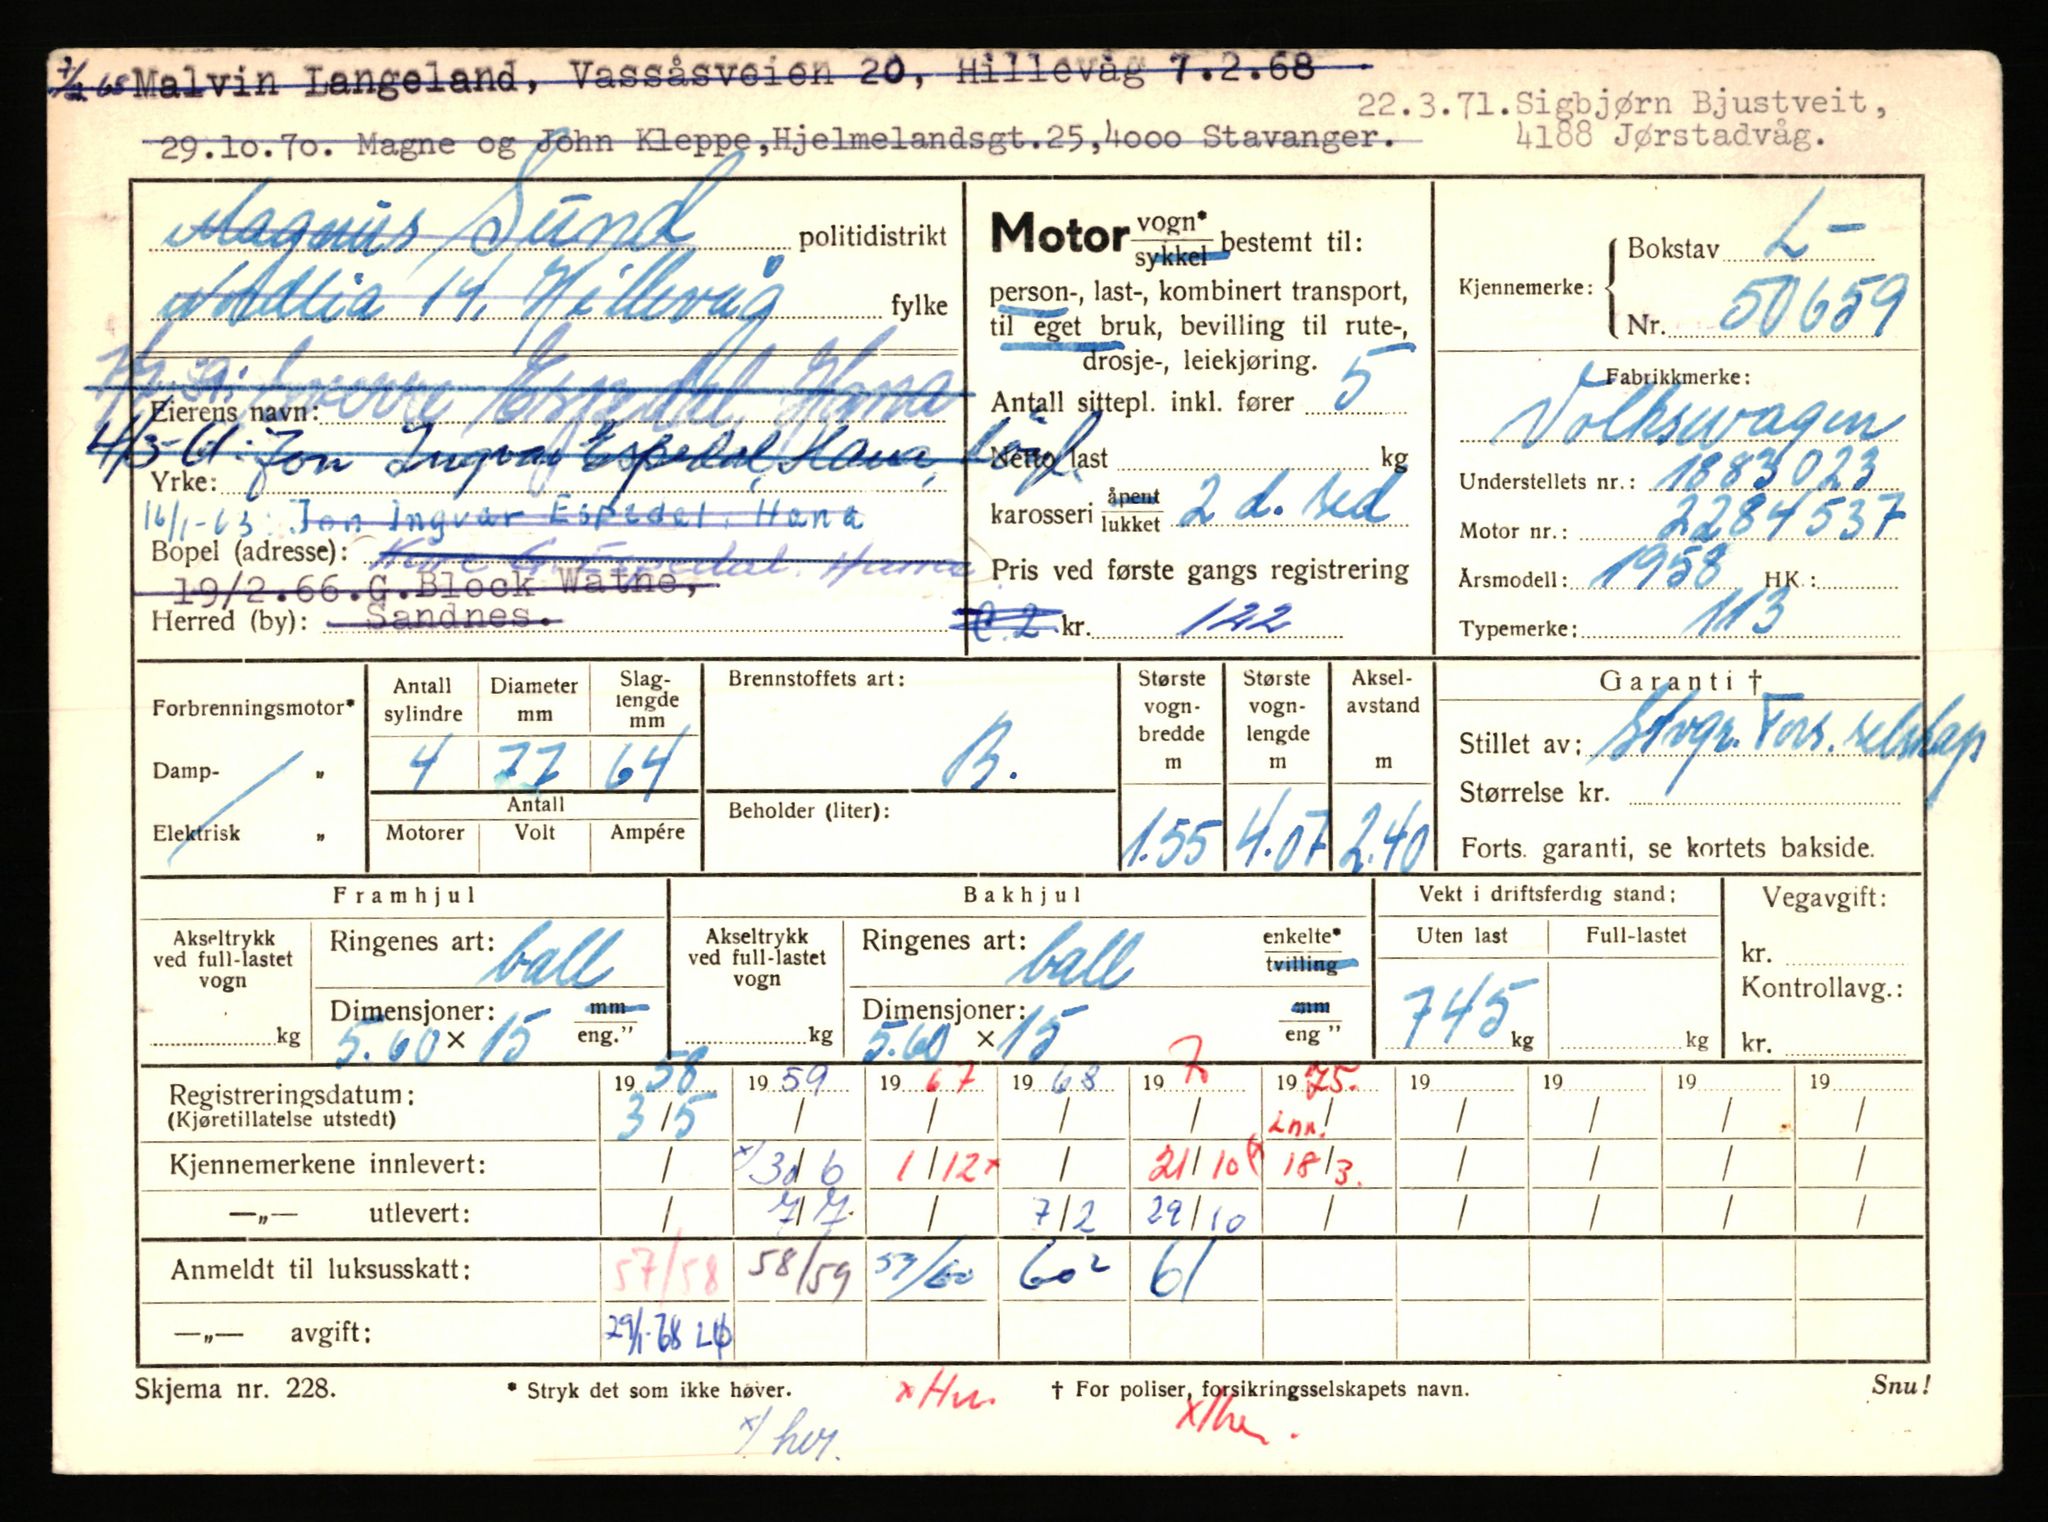 Malvin Langeland, Vassåsveien 20, Hillevåg 7.2.68
22.3.71. Sigbjørn Bjustveit,
29.10.70. Magne og John Kleppe, Hjelmelandsgt. 25, 4000 Stavanger.
4188 Jørstadvåg.
Magnus Sund politidistrikt
14, Hillevåg fylke
Espedal, Hana
Eierens navn:
4/3-61: Jon Ingvar Espedal, Hana,
Yrke:
16/1-63: Jon Ingvar Espedal, Hana
Bopel (adresse):
19/2.66. G. Block Watne,
Herred (by): Sandnes.
Motor vogn* sykkel bestemt til:
person-, last-, kombinert transport,
til eget bruk, bevilling til rute-,
drosje-, leiekjøring.
Antall sittepl. inkl. fører 5
Netto last kg
karosseri åpent lukket 2 d. sed
Pris ved første gangs registrering
kr. 122
Kjennemerke: Bokstav L-
Nr. 50659
Fabrikkmerke:
Volkswagen
Understellets nr.: 1883023
Motor nr.: 2284537
Årsmodell: 1958 HK.:
Typemerke: 113
Forbrenningsmotor*
Damp- "
Elektrisk "
Antall sylindre 4
Diameter mm 77
Slaglengde mm 64
Antall
Motorer Volt Ampére
Brennstoffets art:
B.
Beholder (liter):
Største vognbredde m 1.55
Største vognlengde m 4.07
Akselavstand m 2.40
Garanti †
Stillet av: Stvgr. Fors. selskap
Størrelse kr.
Forts. garanti, se kortets bakside.
Framhjul
Akseltrykk ved full-lastet vogn kg
Ringenes art: ball
Dimensjoner: mm
5.60 × 15 eng."
Bakhjul
Akseltrykk ved full-lastet vogn kg
Ringenes art: ball enkelte* tvilling
Dimensjoner: mm
5.60 × 15 eng"
Vekt i driftsferdig stand:
Uten last Full-lastet
745 kg kg
Vegavgift:
kr.
Kontrollavg.:
kr.
Registreringsdatum: 19 58 19 59 19 67 19 68 19 70 19 75. 19 19 19 19
(Kjøretillatelse utstedt) 3/5 / / / / Inn. / / / / /
Kjennemerkene innlevert: / x/ 30/6 1/12 x / 21/10 (x 18/3. / / / /
—„— utlevert: / 7/7. / 7/2 29/10 / / / / /
Anmeldt til luksusskatt: 57/58 58/59 59/60 60² 61
—„— avgift: 29/1-68
Skjema nr. 228. * Stryk det som ikke høver. † For poliser, forsikringsselskapets navn. Snu!